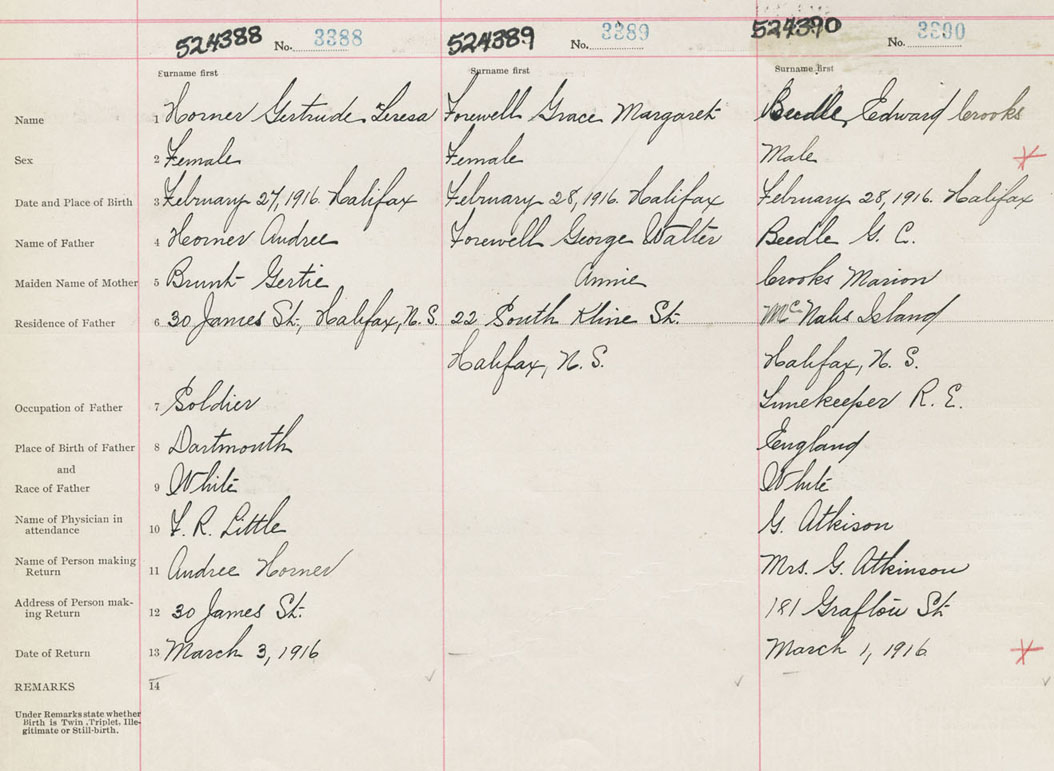 524388 No. 3388 524389 No. 3389 524390 No. 3390
Surname first Surname first Surname first
Name 1 Horner Gertrude Teresa Forewell Grace Margaret Beedle, Edward Crooks
Sex 2 Female Female Male
Date and Place of Birth 3 February 27, 1916. Halifax February 28, 1916. Halifax February 28, 1916. Halifax
Name of Father 4 Horner Andree Forewell George Walter Beedle G. C.
Maiden Name of Mother 5 Brunt Gertie Annie Crooks Marion
Residence of Father 6 30 James St., Halifax, N. S. 22 South Kline St. McNabs Island
Halifax, N. S. Halifax, N. S.
Occupation of Father 7 Soldier Timekeeper R. E.
Place of Birth of Father 8 Dartmouth England
and
Race of Father 9 White White
Name of Physician in
attendance 10 F. R. Little G. Atkison
Name of Person making
Return 11 Andree Horner Mrs. G. Atkinson
Address of Person mak-
ing Return 12 30 James St. 181 Grafton St
Date of Return 13 March 3, 1916 March 1, 1916
REMARKS 14
Under Remarks state whether
Birth is Twin, Triplet, Ille-
gitimate or Still-birth.